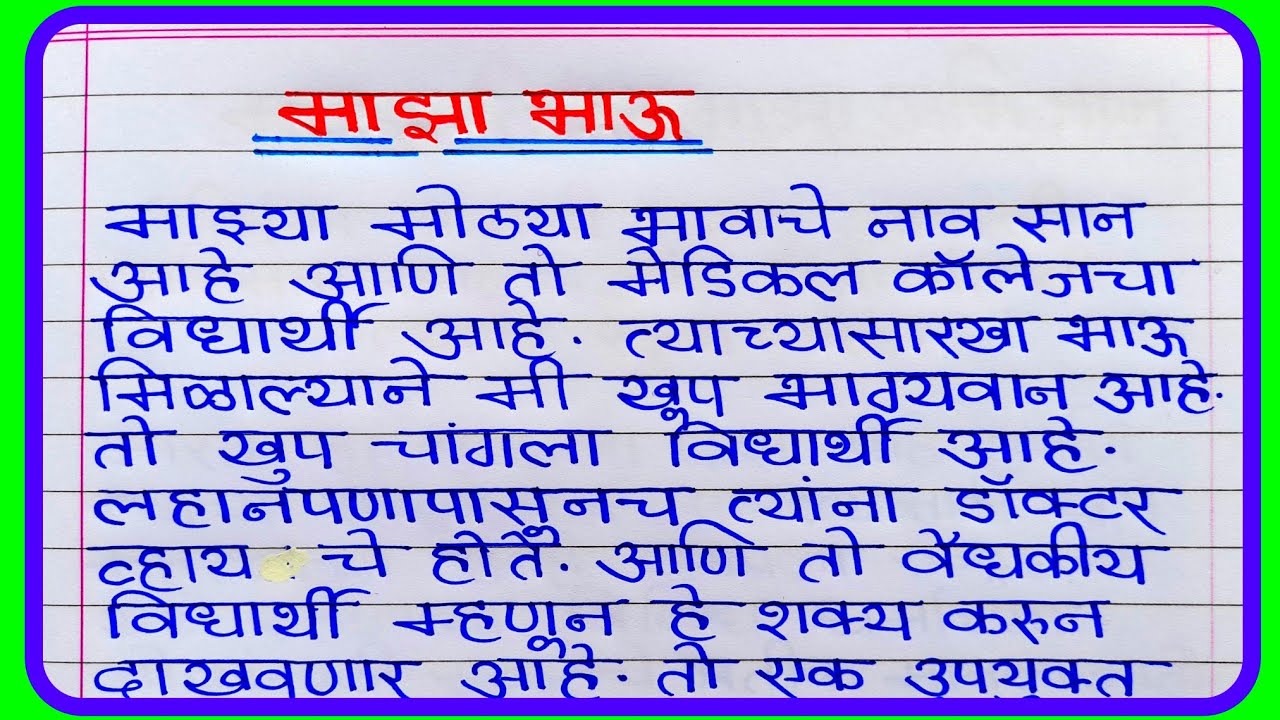 माझा भाऊ
माझ्या मोठया भावाचे नाव सान
आहे आणि तो मेडिकल कॉलेजचा
विधार्थी आहे. त्याच्यासारखा भाऊ
मिळाल्याने मी खूप भाग्यवान आहे.
तो खुप चांगला विधार्थी आहे.
लहानपणापासूनच त्यांना डॉक्टर
व्हाय चे होते. आणि तो वैधकीय
विधार्थी म्हणून हे शक्य करुन
दाखवणार आहे. तो एक उपयुक्त